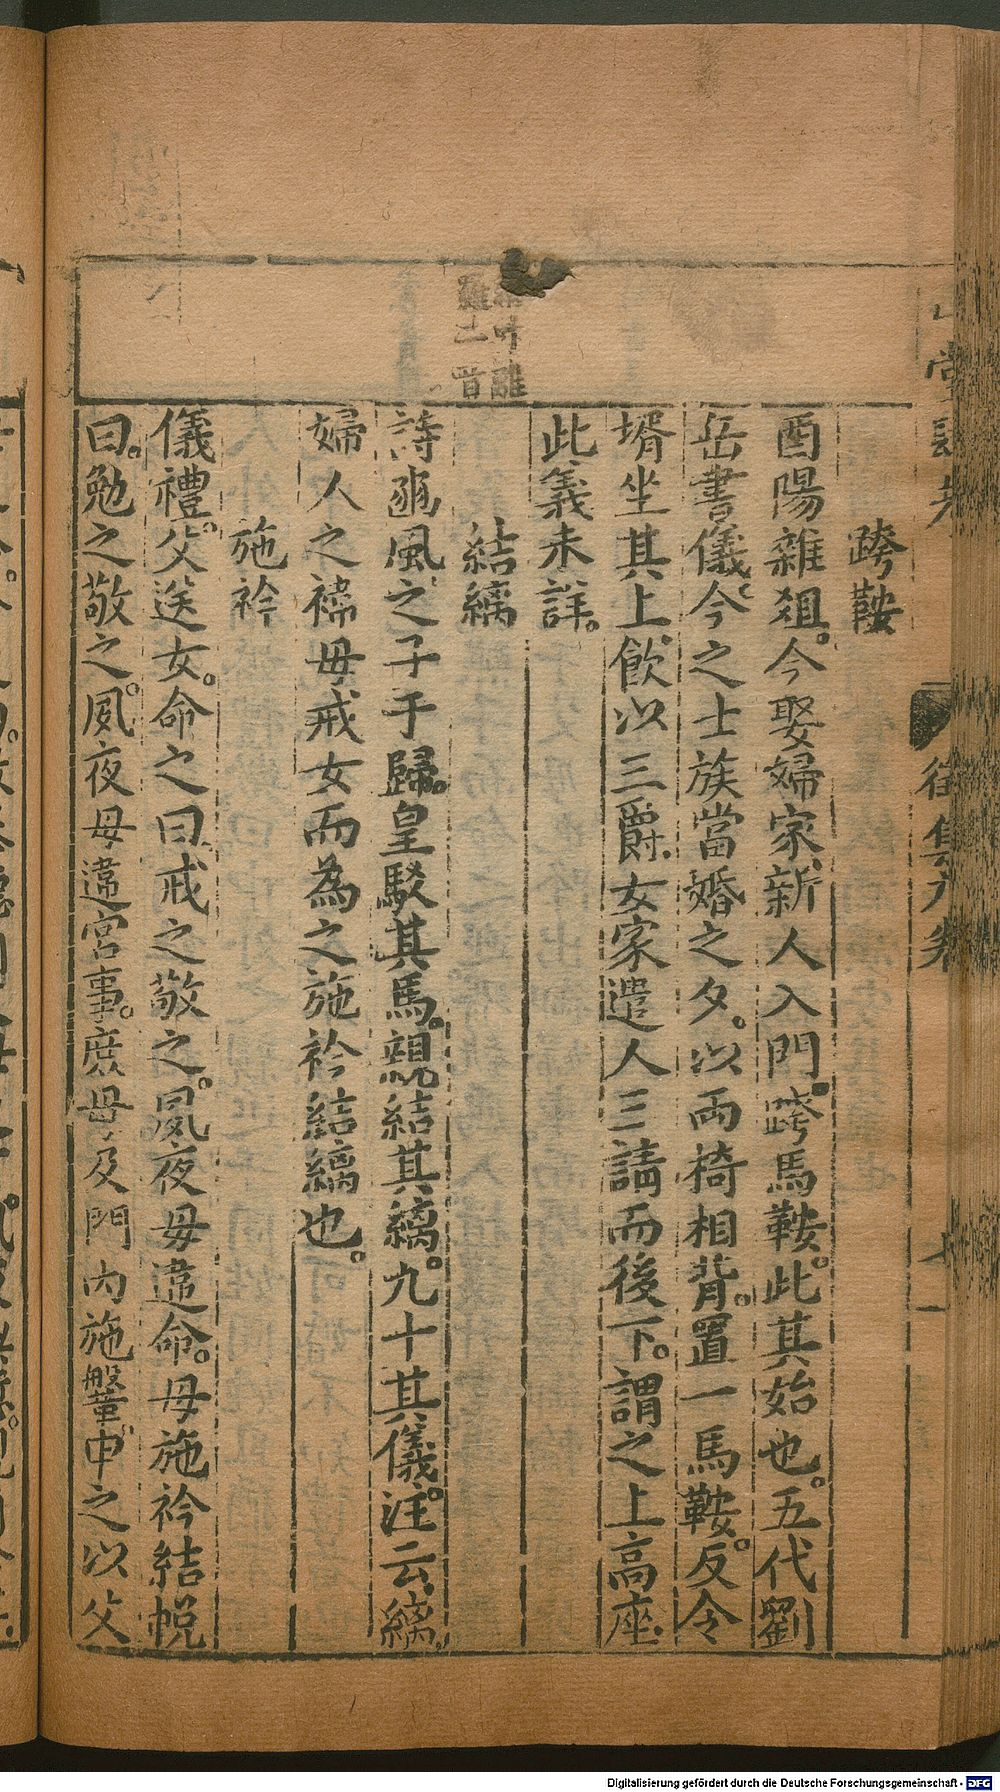 跨鞍
酉陽雜俎。今娶婦家、新人入門。跨馬鞍。此其始也。五代劉
岳書儀、今之士族當婚之夕。以兩椅相背。置一馬鞍。反令
壻坐其上、飲以三爵。女家遣人三請而後下。謂之上高座。
此義未詳。
結縭
詩豳風、之子于歸。皇駁其馬。親結其縭。九十其儀。注云、縭。
婦人之褘母戒女而為之施衿結縭也。
施衿
儀禮。父送女。命之曰、戒之敬之。夙夜毋違命。母施衿結帨
曰。勉之敬之。夙夜毋違宮事。庶母及門內施鞶。申之以父
後集六卷
Digitalisierung gefördert durch die Deutsche Forschungsgemeinschaft - DFG